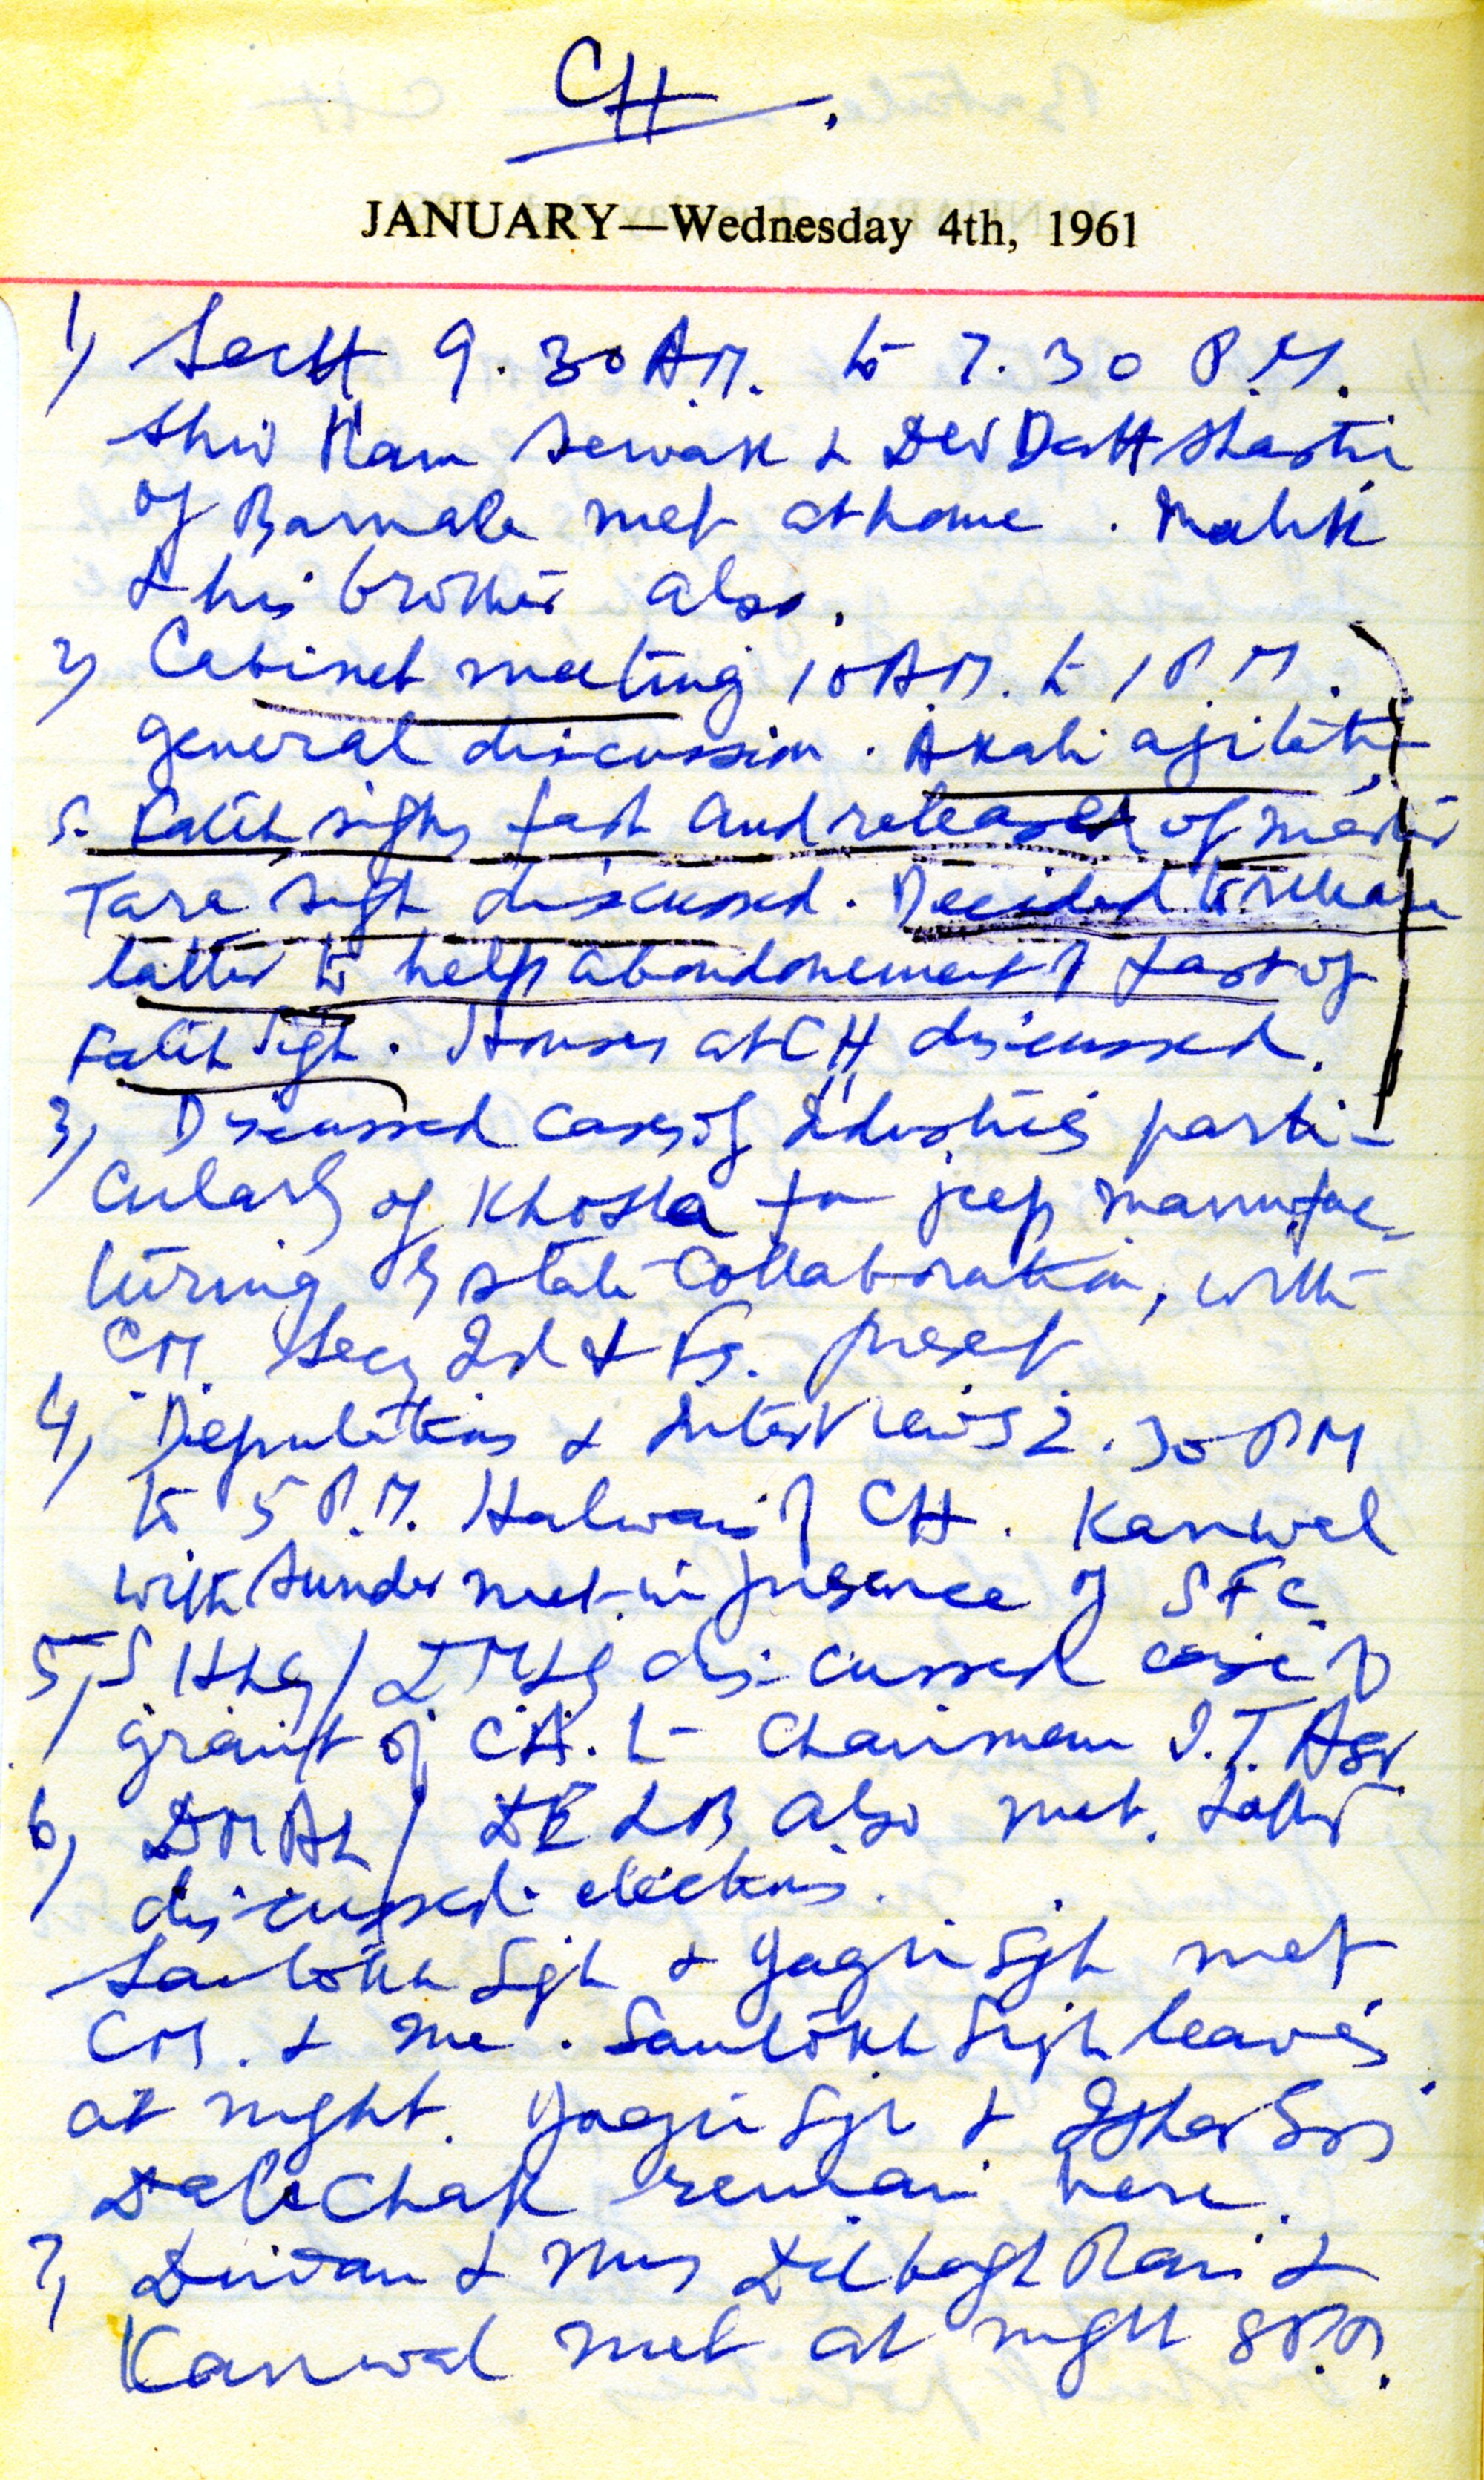 CH.
JANUARY—Wednesday 4th, 1961
1) Sectt 9.30 A.M. to 7.30 P.M.
Shri Ram Sewak & Dev Datt Shastri
of Barnala met at home. Malik
& his brother also.
2) Cabinet meeting 10 A.M. to 1 P.M.
general discussion. Akali agitation
S. Fateh Singh's fast and release of Master
Tara Singh discussed. Decided to release
latter to help abandonement of fast of
Fateh Singh. Houses at CH discussed.
3) Discussed cases of Industries parti-
cularly of Khosla for jeep manufac-
turing by state collaboration, with
C.M. Secy Ind & Fs. present
4) Deputations & Interviews 2.30 PM
to 5 P.M. Halwais of CH. Kanwal
with Sunder met in presence of SFC
5) discussed case of
grant of Chairman I.T. Asr
6) also met. Latter
discussed elections.
Santokh Sgh & Yagri Sgh met
C.M. & me. Santokh Sigh leaves
at night. Yagri Sgh & Isher Sgh
Dalichak remain here.
7) Diwan & Mrs Dilbagh Rai &
Kanwal met at night 8 P.M.